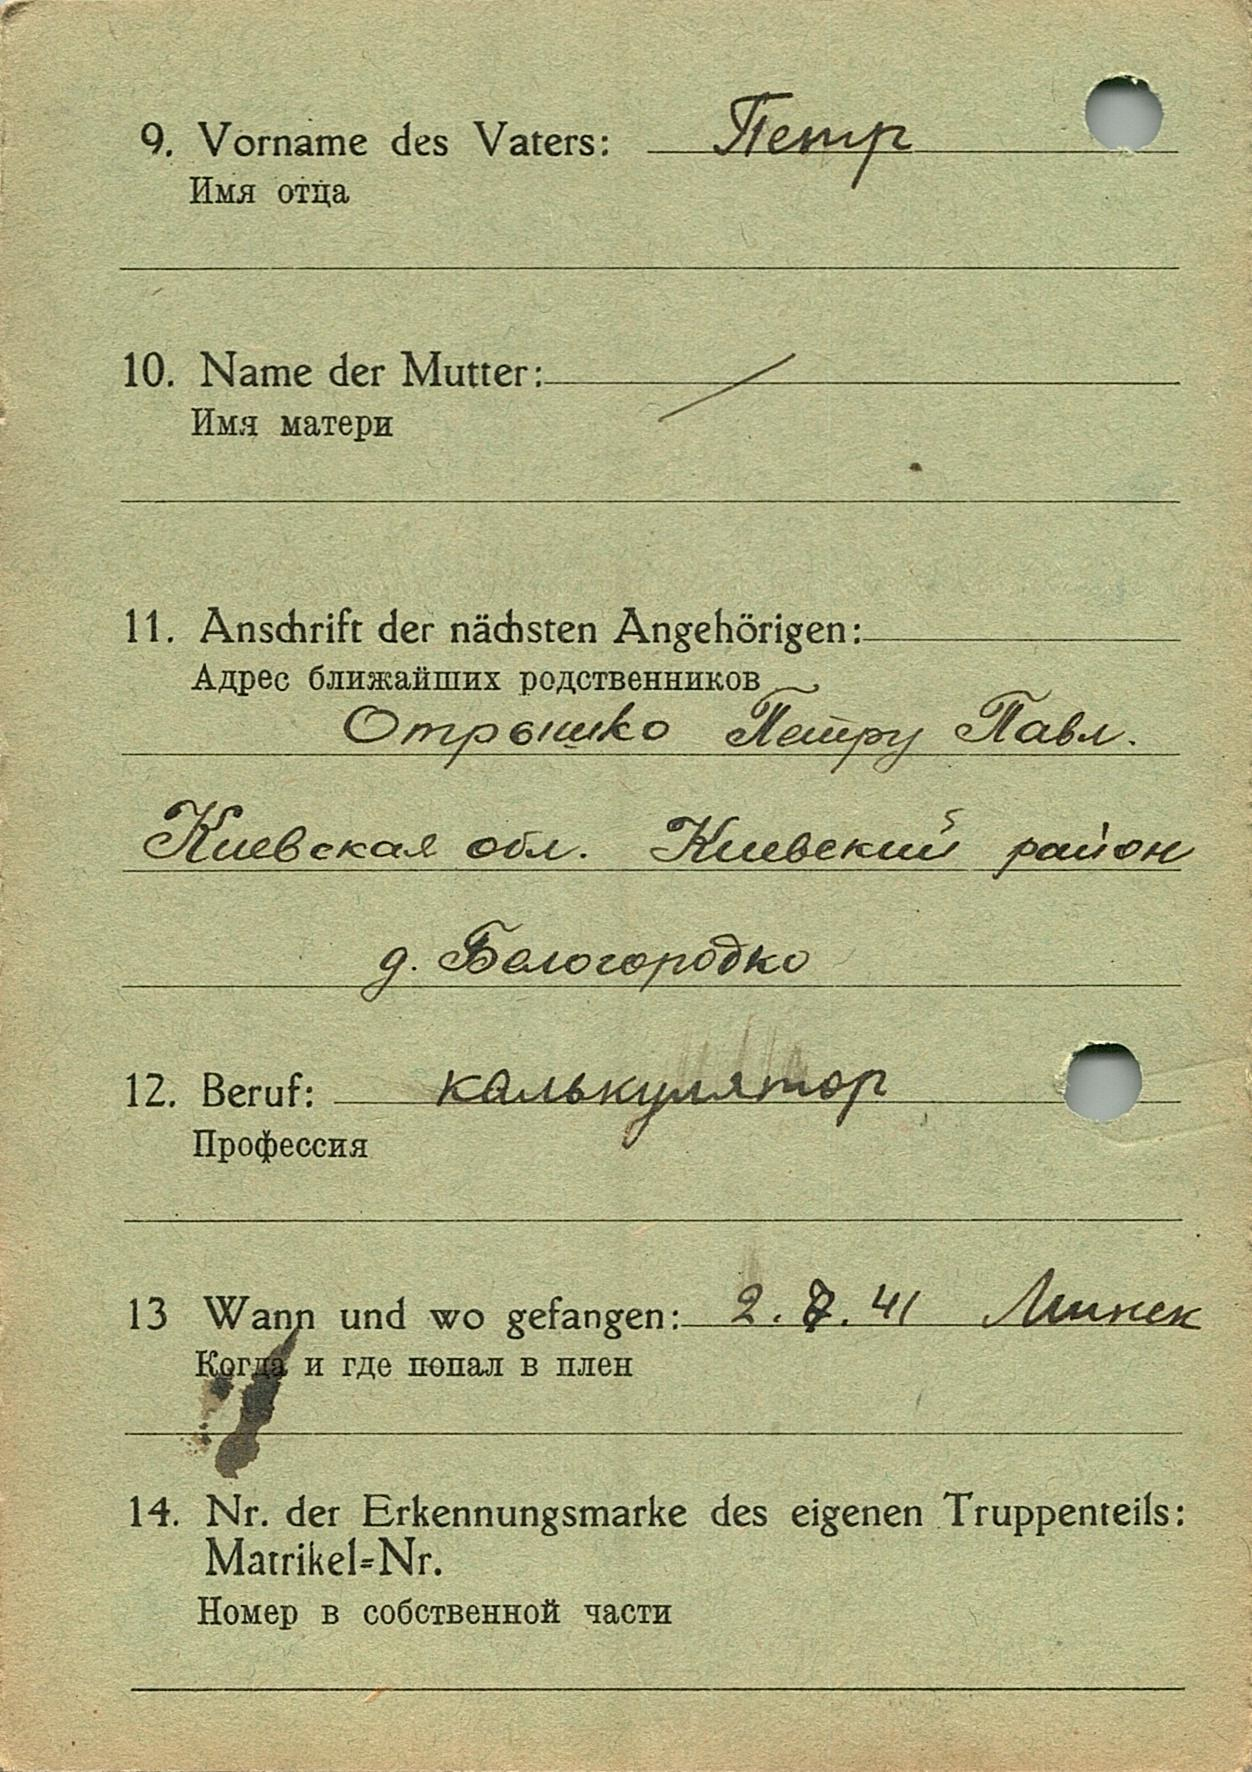 9. Vorname des Vaters: Петр
Имя отца
10. Name der Mutter:
Имя матери
11. Anschrift der nächsten Angehörigen:
Адрес ближайших родственников
Отрышко Петру Павл.
Киевская обл. Киевский район
д. Белогородко
12. Beruf: калькулятор
Профессия
13 Wann und wo gefangen: 2. 7. 41 Минск
Когда и где попал в плен
14. Nr. der Erkennungsmarke des eigenen Truppenteils:
Matrikel=Nr.
Номер в собственной части